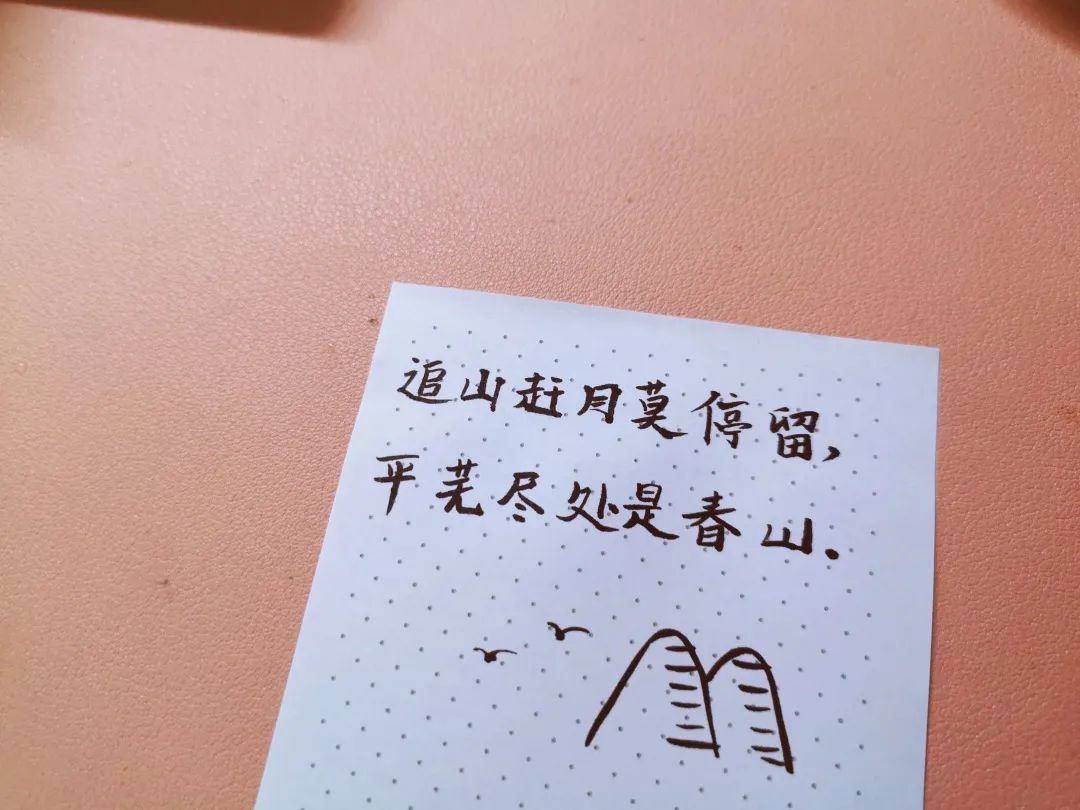 追山赶月莫停留,
平芜尽处是春山.